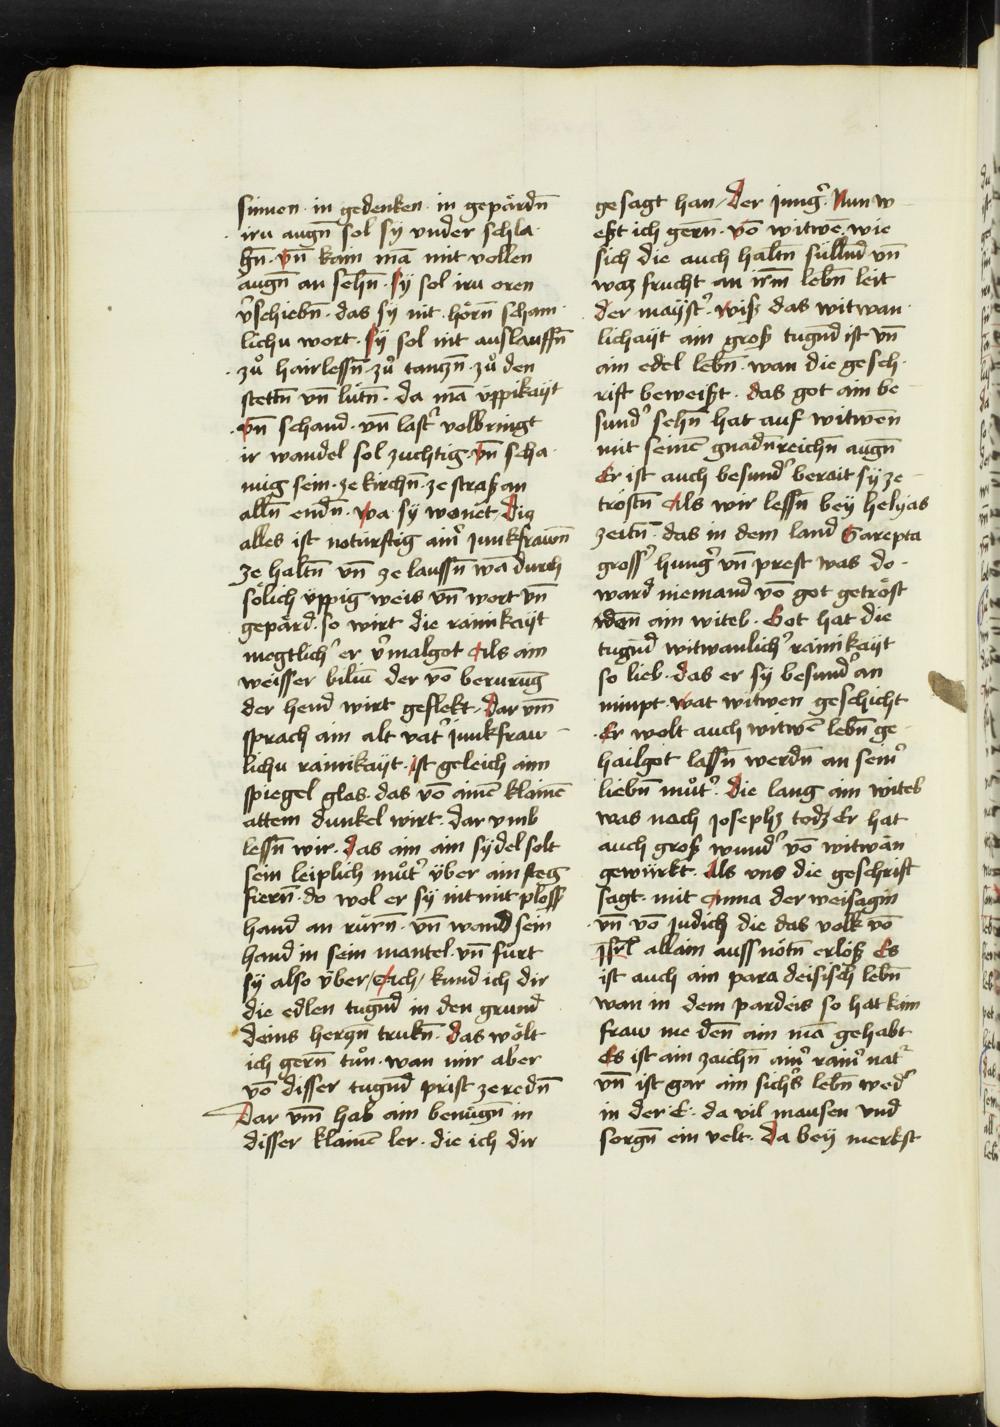 sinnen · in gedenken · in gepärdn̄
irn augn̄ sol sÿ vnder schla·
hn̄ · vn̄ kain mā mit vollen
augn̄ an sehn̄ · sÿ sol irn oren
v̉schiebn̄ · das sÿ nit · hörn̄ scham
lichn wort · sÿ sol nit auslauffn̄
zů hairlessn̄ · zů tanczn̄ · zů den
stettn̄ vn̄ lütn̄ · da mā üppikaÿt
vn̄ schand · vn̄ last̉ volbringt
ir wandel sol zuchtig · vn̄ scha·
mig sein · ze kirchn̄ · ze straß an
alln̄ endn̄ · wa sÿ wonēt Dis
alles ist noturftig ain̉ junkfrawn̄
ze haltn̄ vn̄ ze laussn̄ wā durch
sölich üppig weis vn̄ wort vn̄
gepärd · so wirt die rainikaÿt
megtlich̉ er v̉malgot Als ain
weisser biliū der vō beruruḡ
der hend wirt geflekt · Dar vm̄
sprach ain alt vat̉ junkfraw
lichn rainikaÿt · ist geleich aim
spiegel glas · das vō ainē klainē
attem dunkel wirt · dar vmb
lessn̄ wir · das ain ain sydel solt
sein leiplich můt̉ über ain steg
fiern̄ · do wol er sÿ nit mit ploss̉
hand an rürn̄ · vn̄ wand sein
hand in sein mantel · vn̄ fůrt
sÿ also über / Sich / kund ich dir
die edlen tugn̄d in den grund
deins herczn̄ trukn̄ · das wölt
ich gern̄ tůn · wan mir aber
vō disser tugn̄d prist ze redn̄
Dar vm̄ hab ain benügn̄ in
disser klainē ler · die ich dir
gesagt han / Der jung̉ · Nun w
eßt ich gern̄ · vō witwē · wie
sich die auch haltn̄ sülln̄d vn̄
waz frucht an irm̄ lebn̄ leit
Der maÿst̉ · wiß das witwan
lichaÿt ain groß tugn̄d ist vn̄
ain edel lebn̄ · wan die gesch·
rift beweißt · das got ain be
sund̉ sehn̄ hat auf witwēn
mit seinē gnadn̄reichn̄ augn̄
Er ist auch besund̉ berait sÿ ze
tröstn̄ Als wir lessn̄ beÿ helyas
zeitn̄ · das in dem land Sarepta
gross̉ hung̉ vn̄ prest was do ·
ward niemand vō got getröst
wdēn ain witeb · Got hat die
tugn̄d witwanlich̉ rainikaÿt
so lieb · das er sÿ besund̉ an
nimpt · wat witwen geschicht
Er wolt auch witwē lebn̄ ge
hailgot lassn̄ werdn̄ an seim̉
liebn̄ můt̉ · Die lang ain witeb
was nach josephz todz / Er hat
auch groß wund̉ vō witwān
gewürkt · Als vns die geschrift
sagt · mit Anna der weisagin
vn̄ vō judich die das volk vō
jsrl̄ allain auss nötn̄ erlöß Es
ist auch ain paradeisisch lebn̄
wan in dem pardeis so hat kain
fraw me dēn ain mā gehabt
Es ist ain zaichn̄ ain̉ rain̉ nat̉
vn̄ ist gar ain sich̉s lebn̄ wed̉
in der E · da vil mausen vnd
sorgn̄ ein velt · Da beÿ merkst